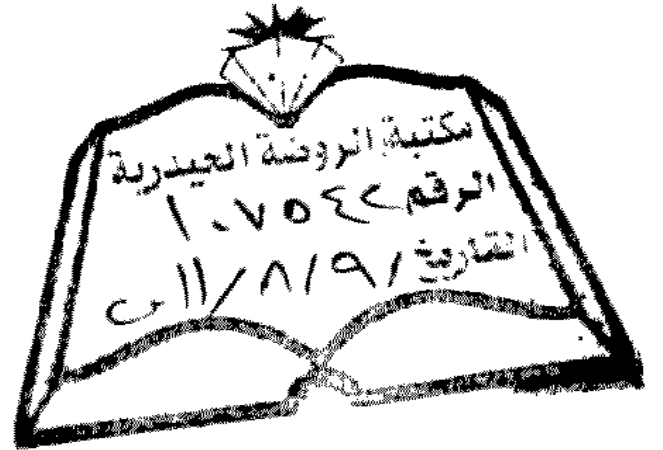 مكتبة الروضة الحيدرية
الرقم ١٠٧٥٤٢
التاريخ /٩/٨/١١